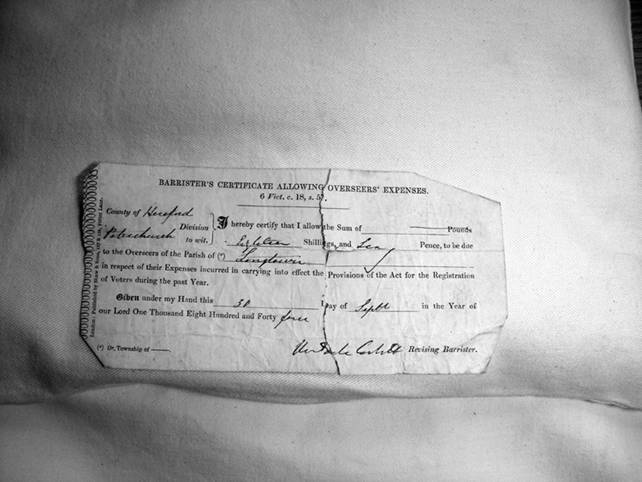 BARRISTER'S CERTIFICATE ALLOWING OVERSEERS' EXPENSES.
6 Vict. c. 18, s. 57.
County of Hereford
Peterchurch Division
to wit.
I hereby certify that I allow the Sum of ——— Pounds
Eighteen Shillings, and Pence, to be due
to the Overseers of the Parish of (*) Longtown
in respect of their Expenses incurred in carrying into effect the Provisions of the Act for the Registration
of Voters during the past Year.
Given under my Hand this 30 Day of Septr in the Year of
our Lord One Thousand Eight Hundred and Forty four
(*) Or, Township of ——
Revising Barrister.